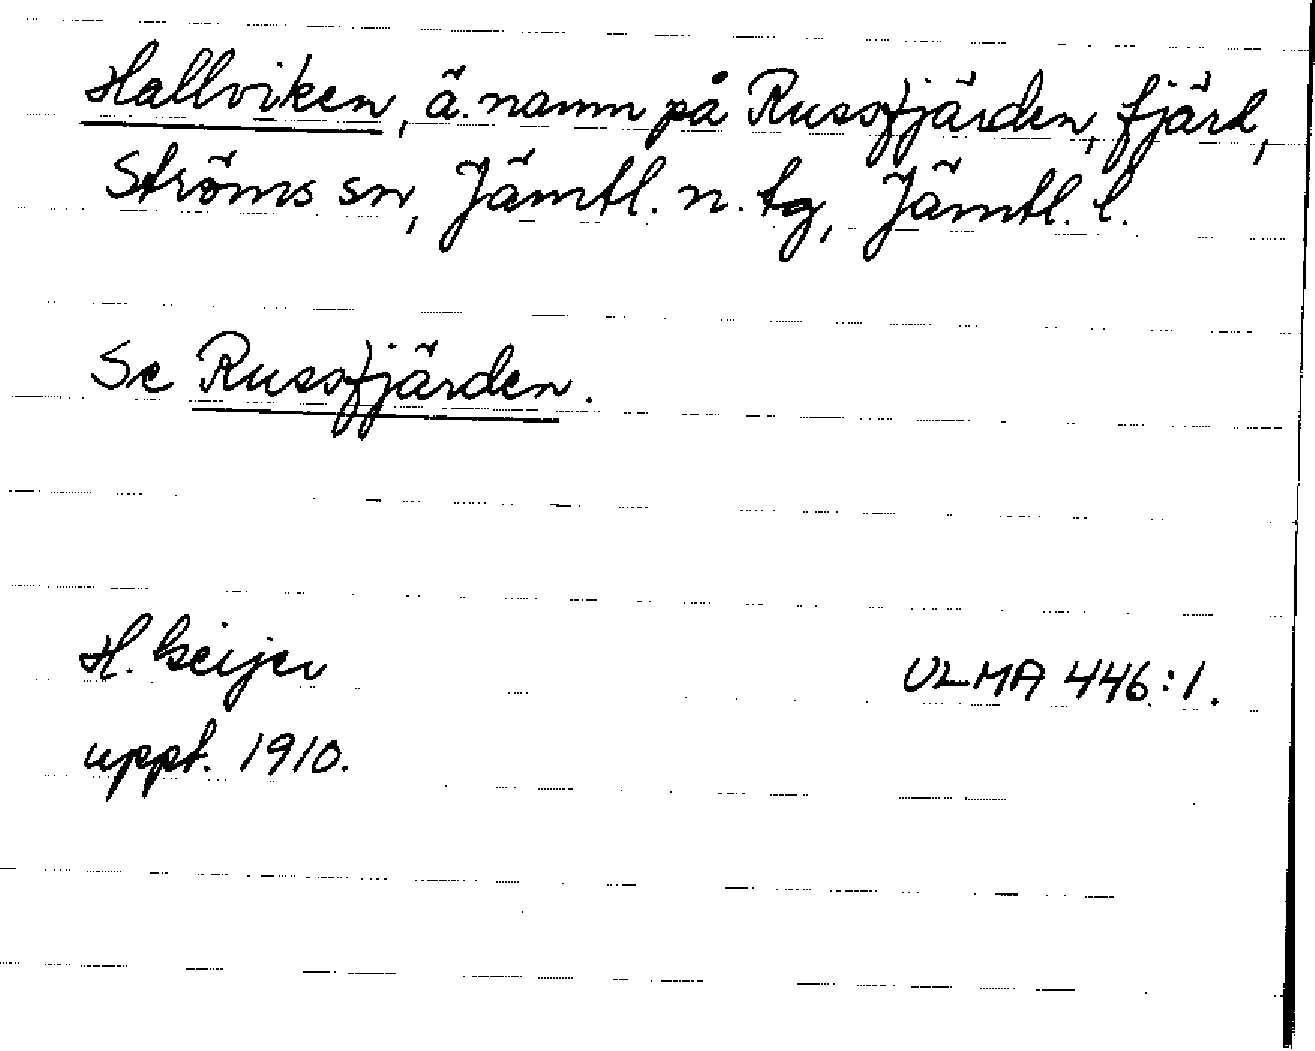 Hallviken, ä. namn på Russfjärden, fjärd,
Ströms sn, Jämtl. n. tg, Jämtl. l.
Se Russfjärden.
H. Geijer
ULMA 446:1.
uppt. 1910.